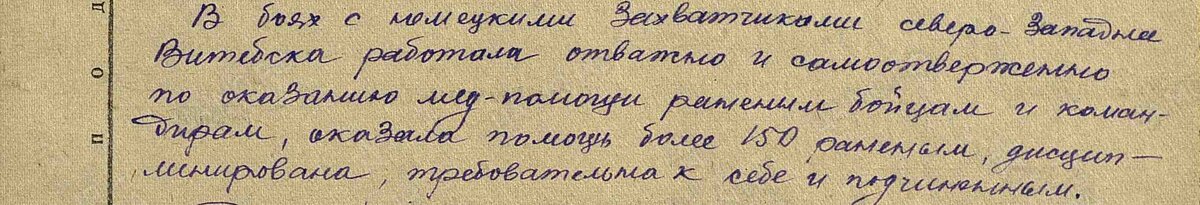 В боях с немецкими захватчиками северо-западнее
Витебска работала отважно и самоотверженно
по оказанию мед-помощи раненым бойцам и коман-
дирам, оказала помощь более 150 раненым, дисцип-
линирована, требовательна к себе и подчиненным.